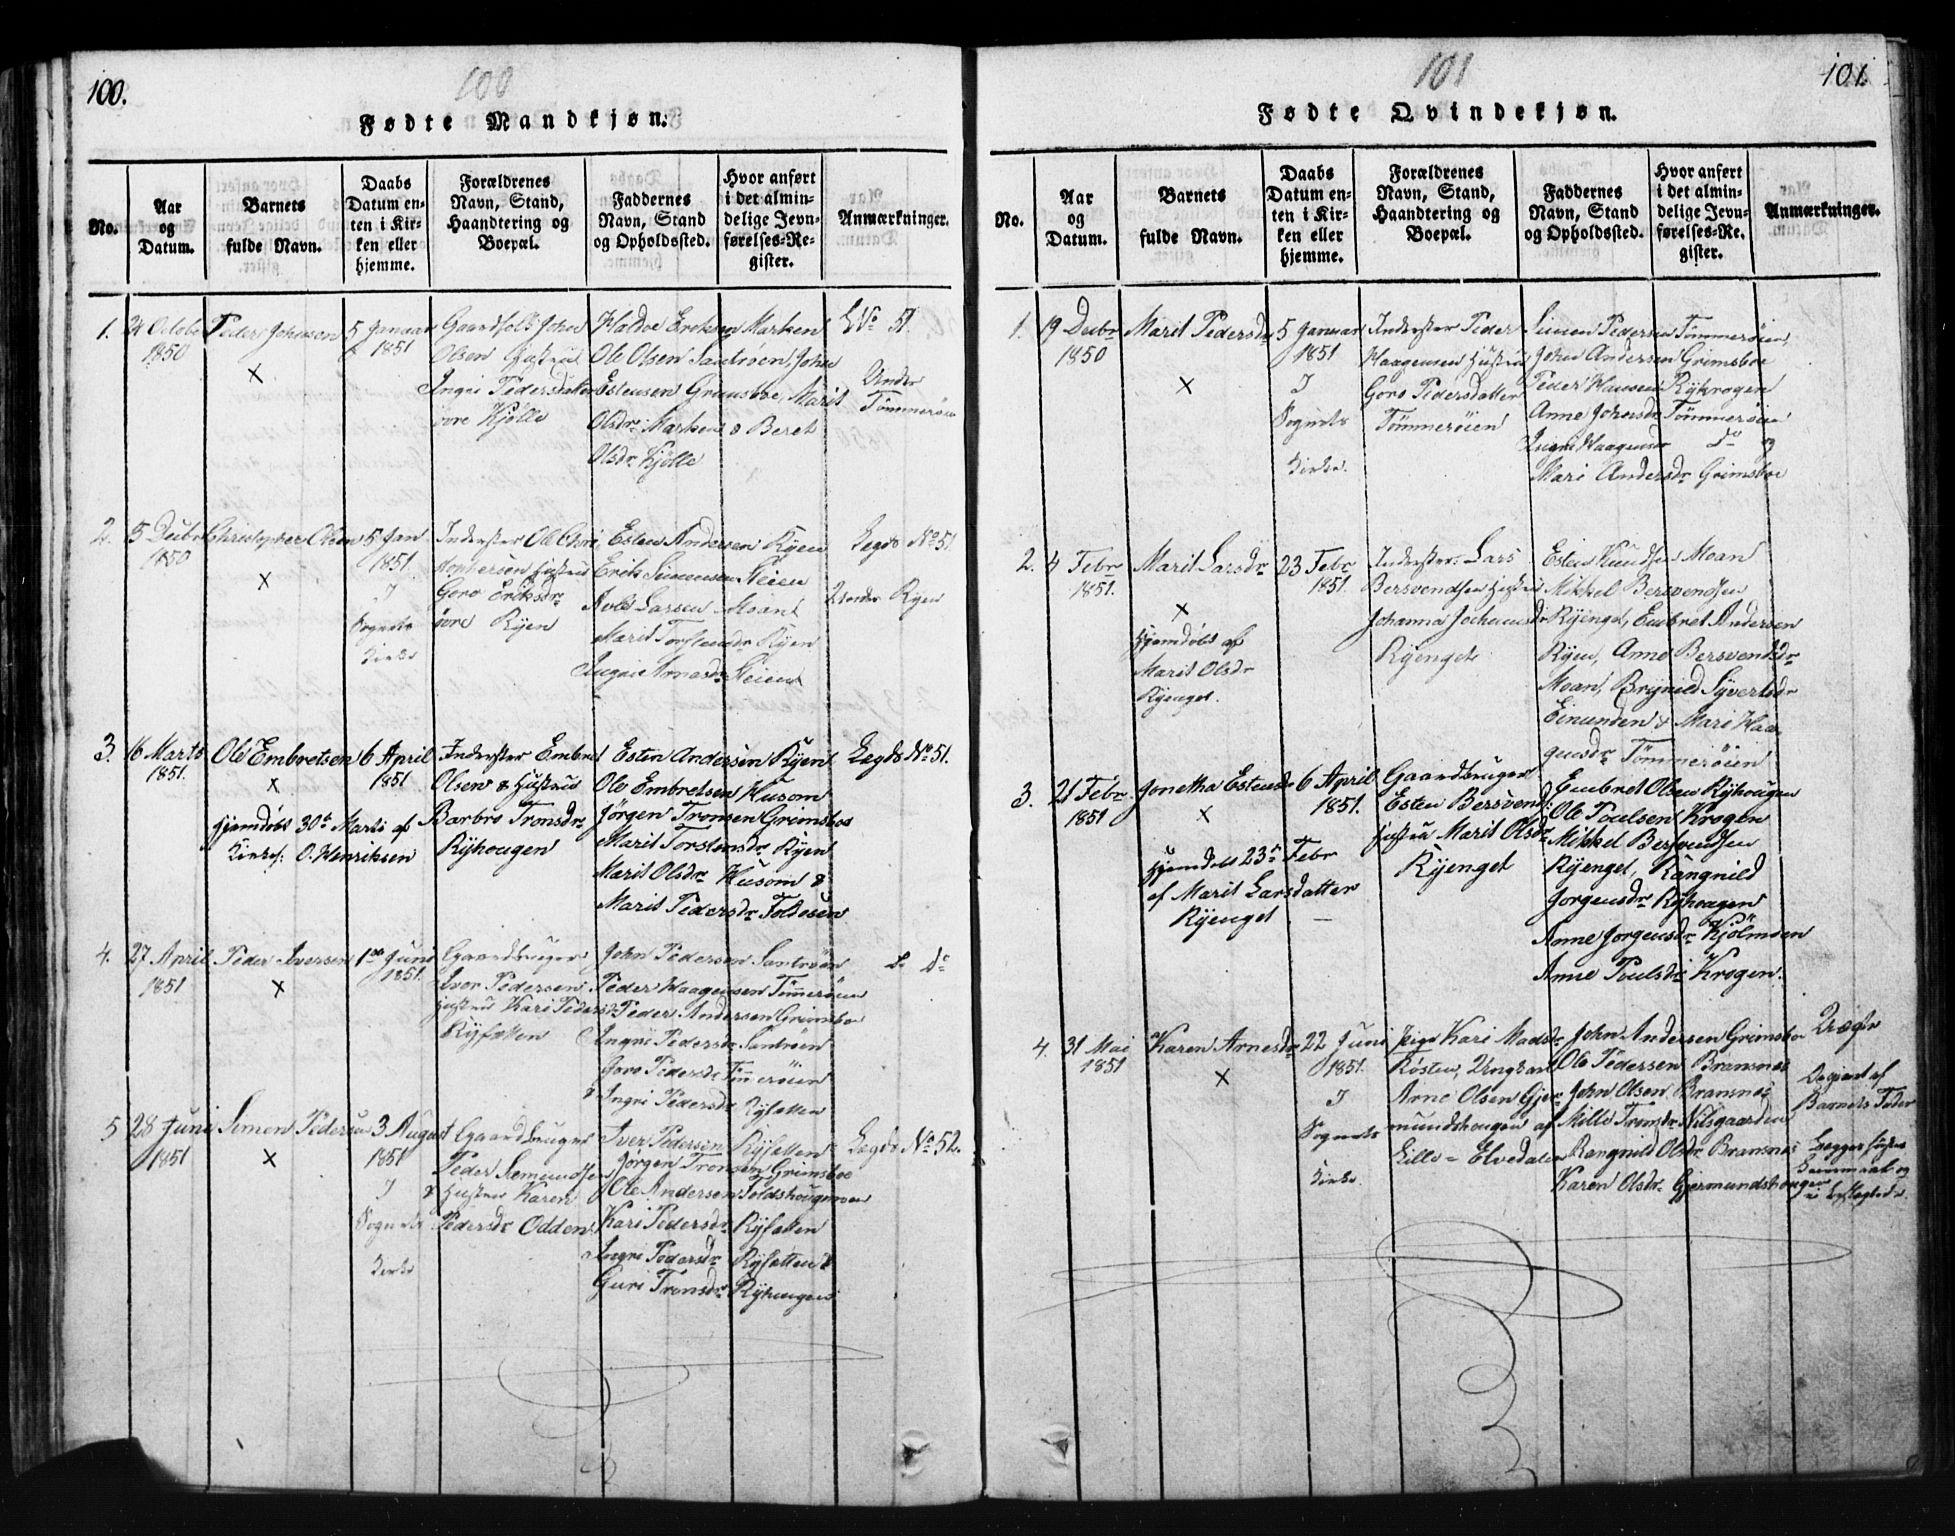 100.
100
Fødte Mandkjøn.
No.
Aar
og
Datum.
Barnets
fulde Navn.
Daabs
Datum en-
ten i Kir-
ken eller
hjemme.
Forældrenes
Navn, Stand,
Haandtering og
Boepæl.
Faddernes
Navn, Stand
og Opholdssted.
Hvor anført
i det almin-
delige Jevn-
førelses-Re-
gister.
Anmærkninger.
1.
1850
Peder Johnsen
×
5 Januar
1851
Gaardfolk John
Olsen Hustrue
Ingri Pedersdatter
øvre Kjølle
Haldoe Eriksen Marken
Ole Olsen Santrøen John
Estensen Grimsboe, Marit
Olsdr Marken & Beret
Olsdr Kjølle
LNo 51.
Under
Tømmerøien
2.
5 Decbr
1850
Christopher Olsen
×
5 Jan
1851.
I
Sognets
Kirke
Inderster Ole Chri
stophersen Hustrue
Goro Eriksdr
øvre Ryen
Esten Andersen Ryen
Erik Simensen Steien
Lars Larsen Moan
Marit Torstensdr Ryen
Ingri Arnesdr Steien
Legds No 51.
Under Ryen
3.
16 Marts
1851.
Ole Embretsen
×
Hjemdøbt 30te Marts af
Kirkes: O. Henriksen
6 April
1851
Inderster Embret
Olsen & Hustrue
Barbro Tronsdr
Ryhougen
Esten Andersen Ryen
Ole Embretsen Husom
Jørgen Tronsen Grimsboe
Marit Torstensdr Ryen
Marit Olsdr Husom &
Marit Pedersdr Toldesen
Legds No 51.
4.
27 April
1851
Peder Iversen
×
1ste Juni
1851.
Gaardbruger
Ivor Pedersen
Hustrue Kari Pedersdr
Ryfetten
John Pedersen Santrøen
Peder Haagensen Tømmerøien
Peder Andersen Grimsboe
Ingri Pedersdr Santrøen
Goro Pedersdr Tømmerøien
& Ingri Pedersdr Ryfetten
L. Do
5
28 Juni
1851
Simen Pedersen
×
3 August
1851
I
Sognets
Kirke
Gaardbruger
Peder Semundsen
& Hustrue Karen
Pedersdr Odden
Iver Pedersen Ryfetten
Jørgen Tronsen Grimsboe
Ole Andersen Toldshougmoen
Kari Pedersdr Ryfetten
Ingri Pedersdr Ryfetten &
Guri Tronsdr Ryhougen
Legds No 52.
101
101.
Fødte Qvindekjøn.
No.
Aar
og
Datum.
Barnets
fulde Navn.
Daabs
Datum en-
ten i Kir-
ken eller
hjemme.
Forældrenes
Navn, Stand,
Haandtering og
Boepæl.
Faddernes
Navn, Stand
og Opholdssted.
Hvor anført
i det almin-
delige Jevn-
førelses-Re-
gister.
Anmærkninger.
1.
19 Decbr
1850
Marit Pedersdr
×
5 Januar
1851
I
Sognets
Kirke.
Inderster Peder
Haagensen Hustrue
Goro Pedersdatter
Tømmerøien
Simen Pedersen Tømmerøien,
John Andersen Grimsboe
Peder Hansen Rykrogen
Anne Johnsdr Tømmerøien
Ingri Haagensdr Do og
Mari Andersdr Grimsboe
2.
4 Febr
1851.
Marit Larsdr
×
Hjemdøbt af
Marit Olsdr
Ryenget.
23 Febr
1851.
Inderster Lars
Bersvendsen Hustrue
Johanna Jochumsdr
Ryenget
Esten Knudsen Moan
Mikkel Bersvendsen
Ryenget, Embret Andersen
Ryen, Anne Bersvendsdr
Moan, Brynild Syvertsdr
Einunden & Mari Haa
gensdr Tømmerøien
3.
21 Febr
1851
Jonetha Estensdr
×
Hjemdøbt 23de Febr
af Marit Larsdatter
Ryenget
6 April
1851.
Gaardbruger
Esten Bersvends:
Hustrue Marit Olsdr
Ryenget
Embret Olsen Ryhougen
Ole Poulsen Krogen
Mikkel Bersvendsen
Ryenget, Rangnild
Jorgensdr Ryhougen
Anne Jorgensdr Kjølmoen
Anne Poulsdr Krogen.
4.
31 Mai
1851
Karen Arnesdr
×
22 Juni
1851.
I
Sognets
Kirke.
Pige Kari Madsdr
Røsten, Ungkarl
Arne Olsen Gjer
mundshougen af
Lille-Elvedalen
John Andersen Grimsboe
Ole Pedersen Bramsnes
John Olsen Bramsnes
Mille Tronsdr Nilsgaarden
Rangnild Olsdr Bramsnes
Karen Olsdr Gjermundshougen
Uægte
Begient af
Barnets Fader